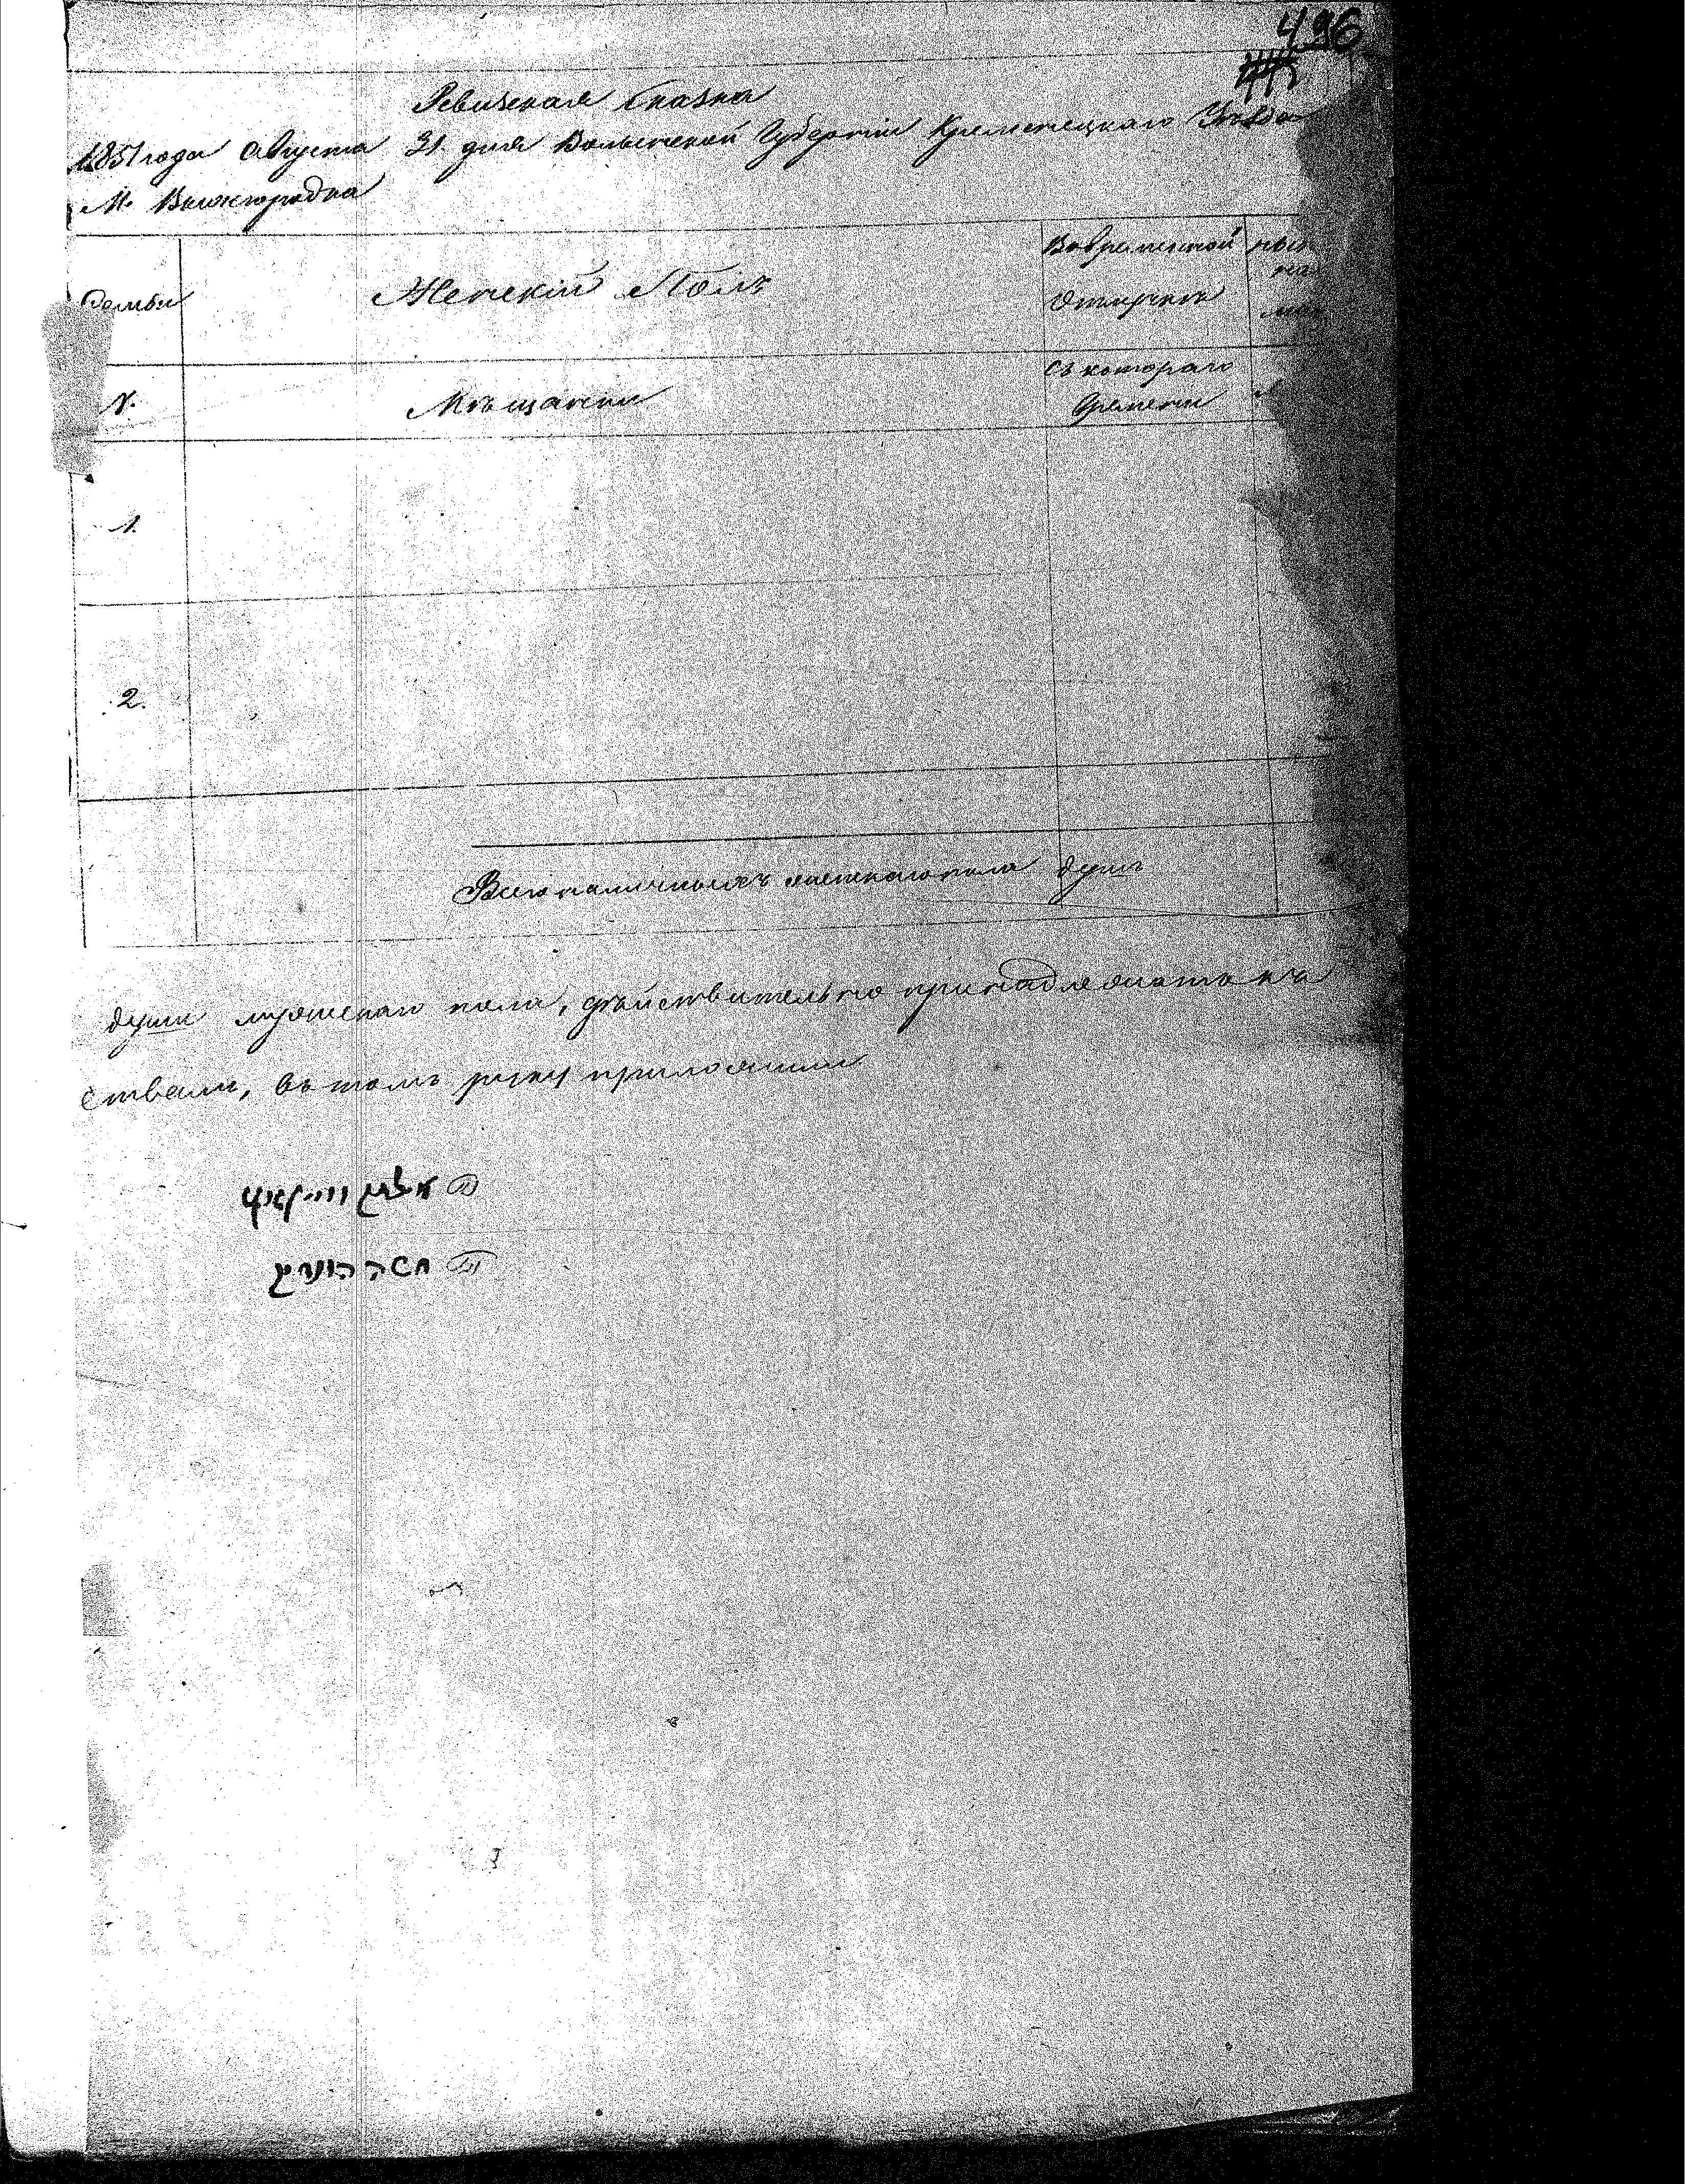 496
Ревизская Сказка
1851 года Августа 31 дня Волынской Губернии Кременецкаго Уѣзда
М. Вижгородка
Семьи
Женскій Полъ
Вовременной
Отлучкѣ
№
Мѣщанки
съ котораго
времени
1.
2.
Всего наличныхъ женскаго пола душъ
души мужескаго пола, дѣйствительно принадлежатъ къ
ствамъ, въ томъ руку приложили
משה